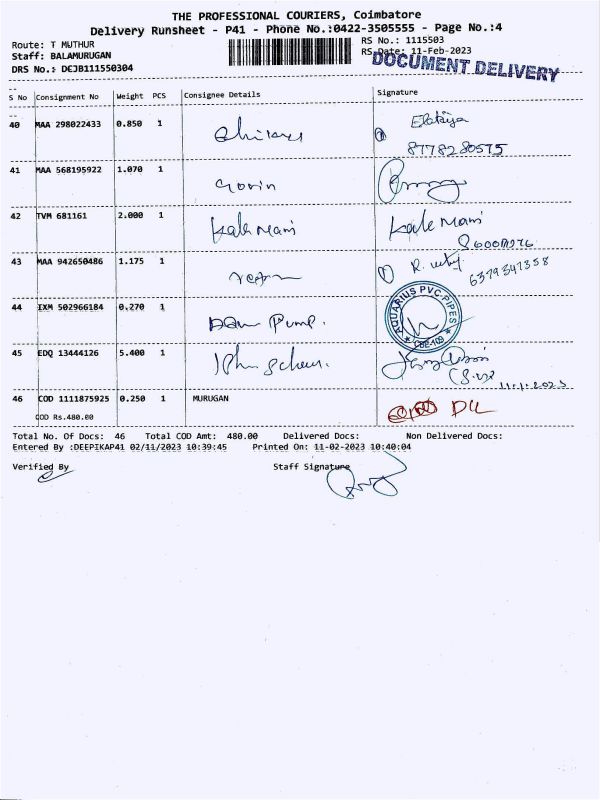 THE PROFESSIONAL COURIERS, Coimbatore
Delivery Runsheet - P41 - Phone No.:0422-3505555 - Page No.:4
Route: T MUTHUR
RS No.: 1115503
Staff: BALAMURUGAN
RS Date: 11-Feb-2023
DRS No.: DEJB111550304
DOCUMENT DELIVERY
S No Consignment No Weight PCS Consignee Details Signature
40 MAA 298022433 0.850 1
8778280575
41 MAA 568195922 1.070 1
42 TVM 681161 2.000 1 Kale Mani Kale Mani
43 MAA 942650486 1.175 1
6379347358
44 IXM 502966184 0.270 1 Pump.
AQUARIUS PVC PIPES
CBE-109
45 EDQ 13444126 5.400 1
46 COD 1111875925 0.250 1 MURUGAN
COD Rs.480.00
DL
Total No. Of Docs: 46 Total COD Amt: 480.00 Delivered Docs: Non Delivered Docs:
Entered By :DEEPIKAP41 02/11/2023 10:39:45 Printed On: 11-02-2023 10:40:04
Verified By Staff Signature